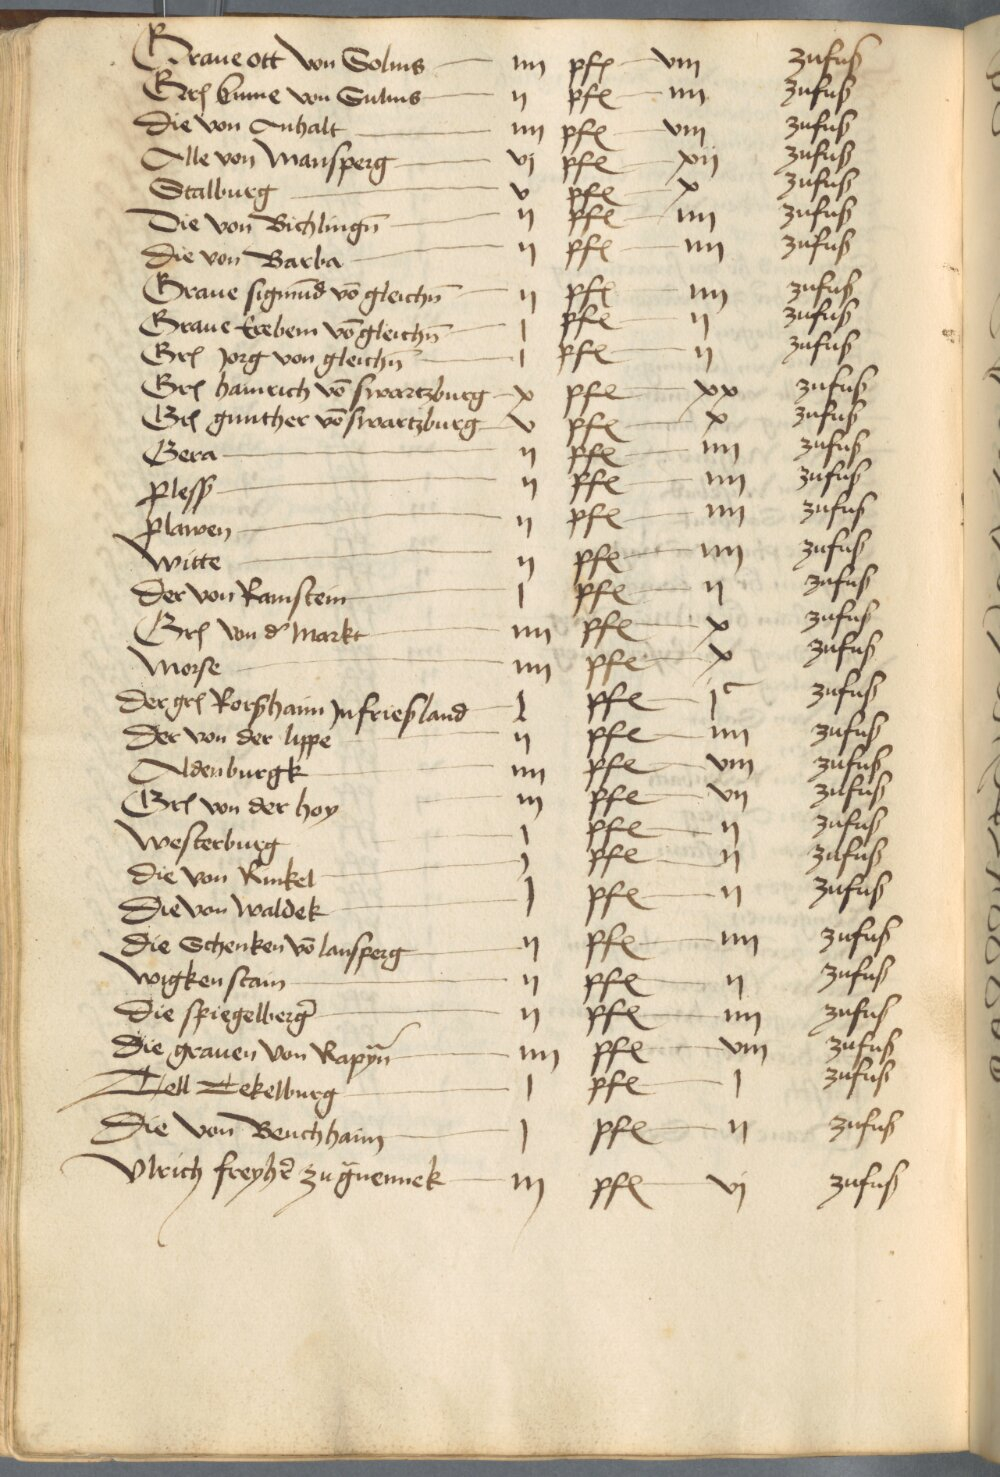 Graue ott von Solms iiij pfȩ viij zufuß
Grȩ kune von Sulms ij pfȩ iiij zufuß
Die von Anhalt iiij pfȩ viij zufuß
Alle von Mansperg vj pfȩ xij zufuß
Stalburg v pfȩ x zufuß
Die von Bichlingn̄ ij pfȩ iiij zufuß
Die von Barba ij pfȩ iiij zufuß
Graue sigmūd vō gleichn̄ ij pfȩ iiij zufuß
Graue Erbem vō gleichn̄ j pfȩ ij zufuß
Grȩ Jorg von gleichn̄ j pfȩ ij zufuß
Grȩ hainrich vō swartzburg x pfȩ xx zufuß
Grȩ gunther vō swartzburg v pfȩ x zufuß
Gera ij pfȩ iiij zufuß
Pless ij pfȩ iiij zufuß
Plawen ij pfȩ iiij zufuß
Witte ij pfȩ iiij zufuß
Der von Ramstein j pfȩ ij zufuß
Grȩ von d' Markt iiij pfȩ x zufuß
Morse iiij pfȩ x zufuß
Der grȩ Rorßhaim Jn frießland j pfȩ jᶜ zufuß
Der von der lippe ij pfȩ iiij zufuß
Aldenburgk iiij pfȩ viij zufuß
Grȩ von der hoy iij pfȩ vij zufuß
Westerburg j pfȩ ij zufuß
Die von Rinkel j pfȩ ij zufuß
Die von Waldek j pfȩ ij zufuß
Die Schenken vō lansperg ij pfȩ iiij zufuß
Wigkenstain ij pfȩ ij zufuß
Die spiegelberg' ij pfȩ iiij zufuß
Die grauen von Rapÿn̄ iiij pfȩ viij zufuß
Tell Tekelburg j pfȩ j zufuß
Die von Benthaim j pfȩ ij zufuß
Vlrich freyh'r zu iij pfȩ vj zufuß